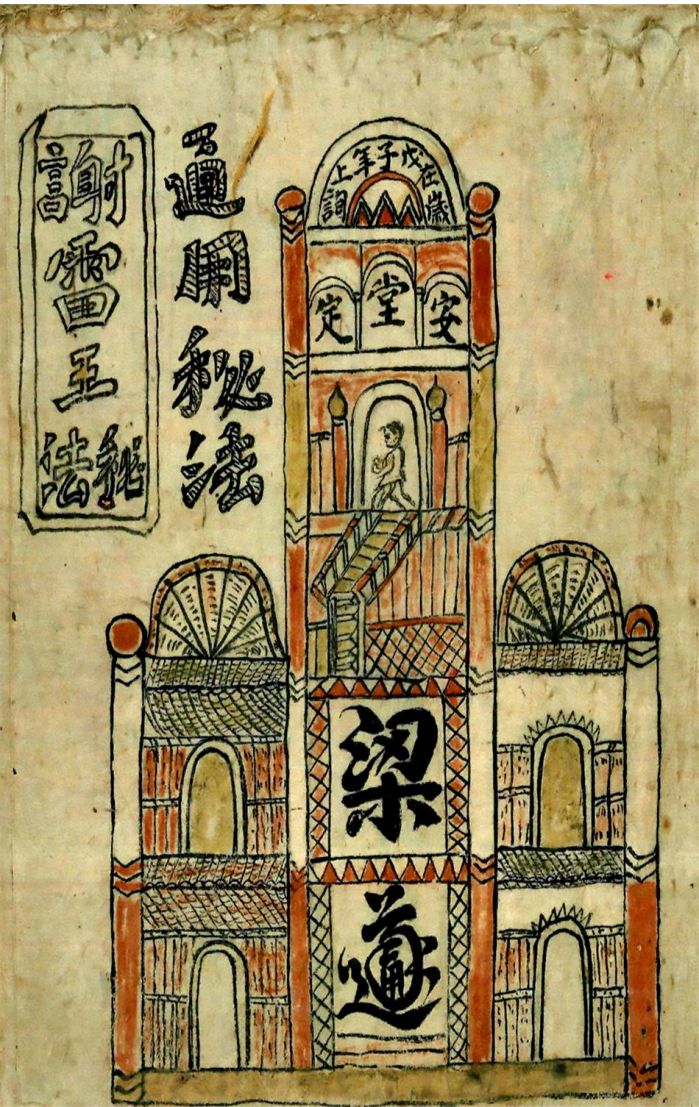 歲在戊子年上詢
安堂定
通 秘法
謝雷王秘法
梁